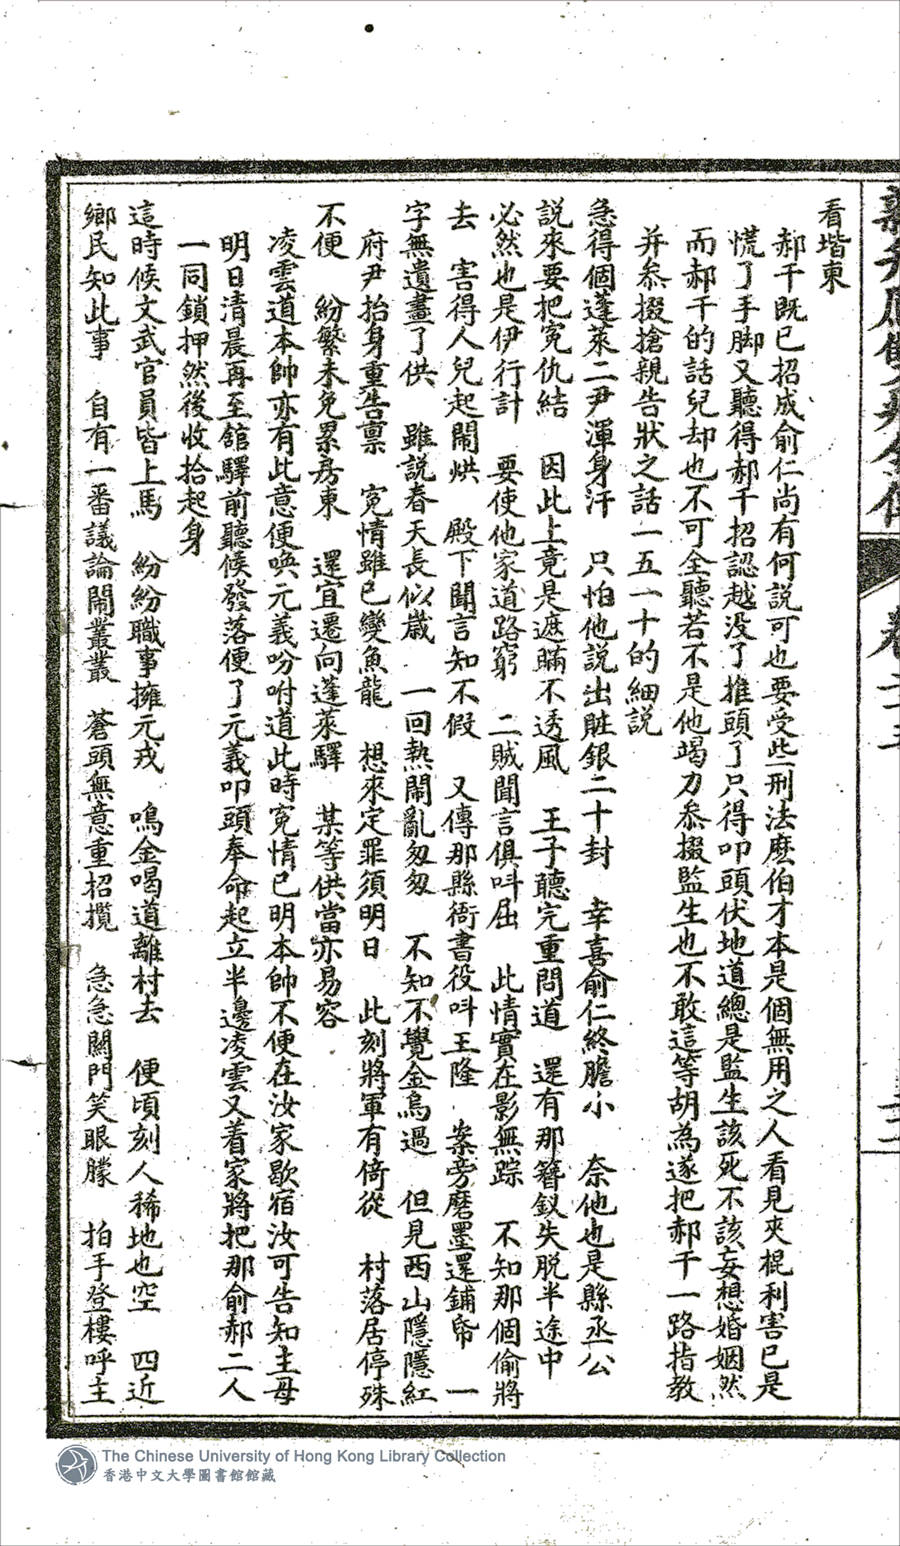 看堦東
郝干既已招成俞仁尚有何説可也要受些刑法麽伯才本是個無用之人看見夾棍利害已是
慌了手脚又聽得郝干招認越没了推頭了只得叩頭伏地道總是監生該死不該妄想婚姻然
而郝干的話兒却也不可全聽若不是他竭力叅掇監生也不敢這等胡為遂把郝干一路指教
并叅掇搶親告狀之話一五一十的細説
急得個蓬萊二尹渾身汗　只怕他説出賍銀二十封　幸喜俞仁終膽小　奈他也是縣丞公
説來要把寃仇結　因此上竟是遮瞞不透風　王子聽完重問道　還有那簪釵失脱半途中
必然也是伊行計　要使他家道路窮　二賊聞言俱呌屈　此情實在影無踪　不知那個偷將
去　害得人兒起鬧烘　殿下聞言知不假　又傳那縣衙書役呌王隆　案旁磨墨還鋪帋　一
字無遺畫了供　雖説春天長似嵗　一回熱鬧亂匆匆　不知不覺金烏過　但見西山隱隱紅
府尹抬身重告禀　寃情雖已變魚龍　想來定罪須明日　此刻將軍有倚從　村落居停殊
不便　紛繁未免累房東　還宜遷向蓬萊驛　某等供當亦易容
凌雲道本帥亦有此意便喚元義吩咐道此時寃情已明本帥不便在汝家歇宿汝可告知主母
明日清晨再至舘驛前聽候發落便了元義叩頭奉命起立半邊凌雲又着家將把那俞郝二人
一同鎖押然後收拾起身
這時候文武官員皆上馬　紛紛職事擁元戎　鳴金喝道離村去　便頃刻人稀地也空　四近
鄉民知此事　自有一番議論鬧叢叢　蒼頭無意重招攬　急急關門笑眼朦　拍手登樓呼主
The Chinese University of Hong Kong Library Collection
香港中文大學圖書館館藏